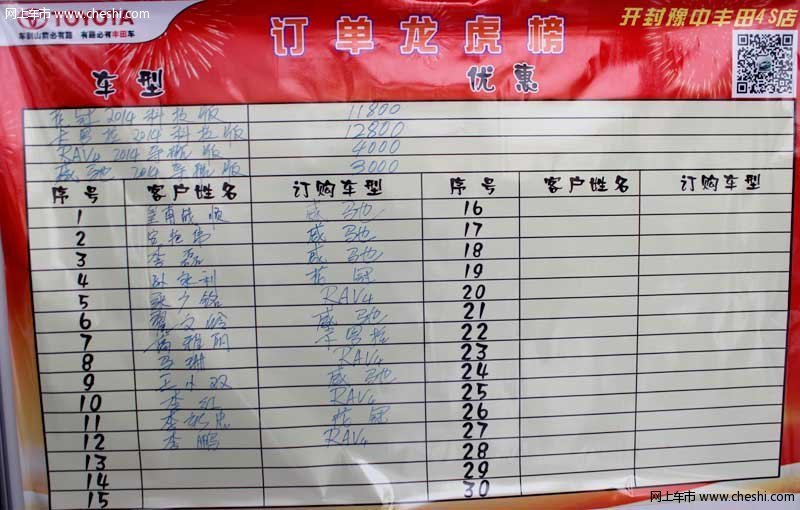 网上车市 www.cheshi.com
TOYOTA
车到山前必有路 有路必有丰田车
订单龙虎榜
开封豫中丰田4S店
车型 优惠
花冠 2014 科技版 11800
卡罗拉 2014 科技版 12800
RAV4 2014 导航版 4000
威驰 2014 导航版 3000
序号 客户姓名 订购车型 序号 客户姓名 订购车型
1 威驰 16
2 威驰 17
3 李磊 威驰 18
4 花冠 19
5 RAV4 20
6 威驰 21
7 22
8 马琳 RAV4 23
9 王小双 威驰 24
10 李红 RAV4 25
11 花冠 26
12 李鹏 RAV4 27
13 28
14 29
15 30
网上车市 www.cheshi.com